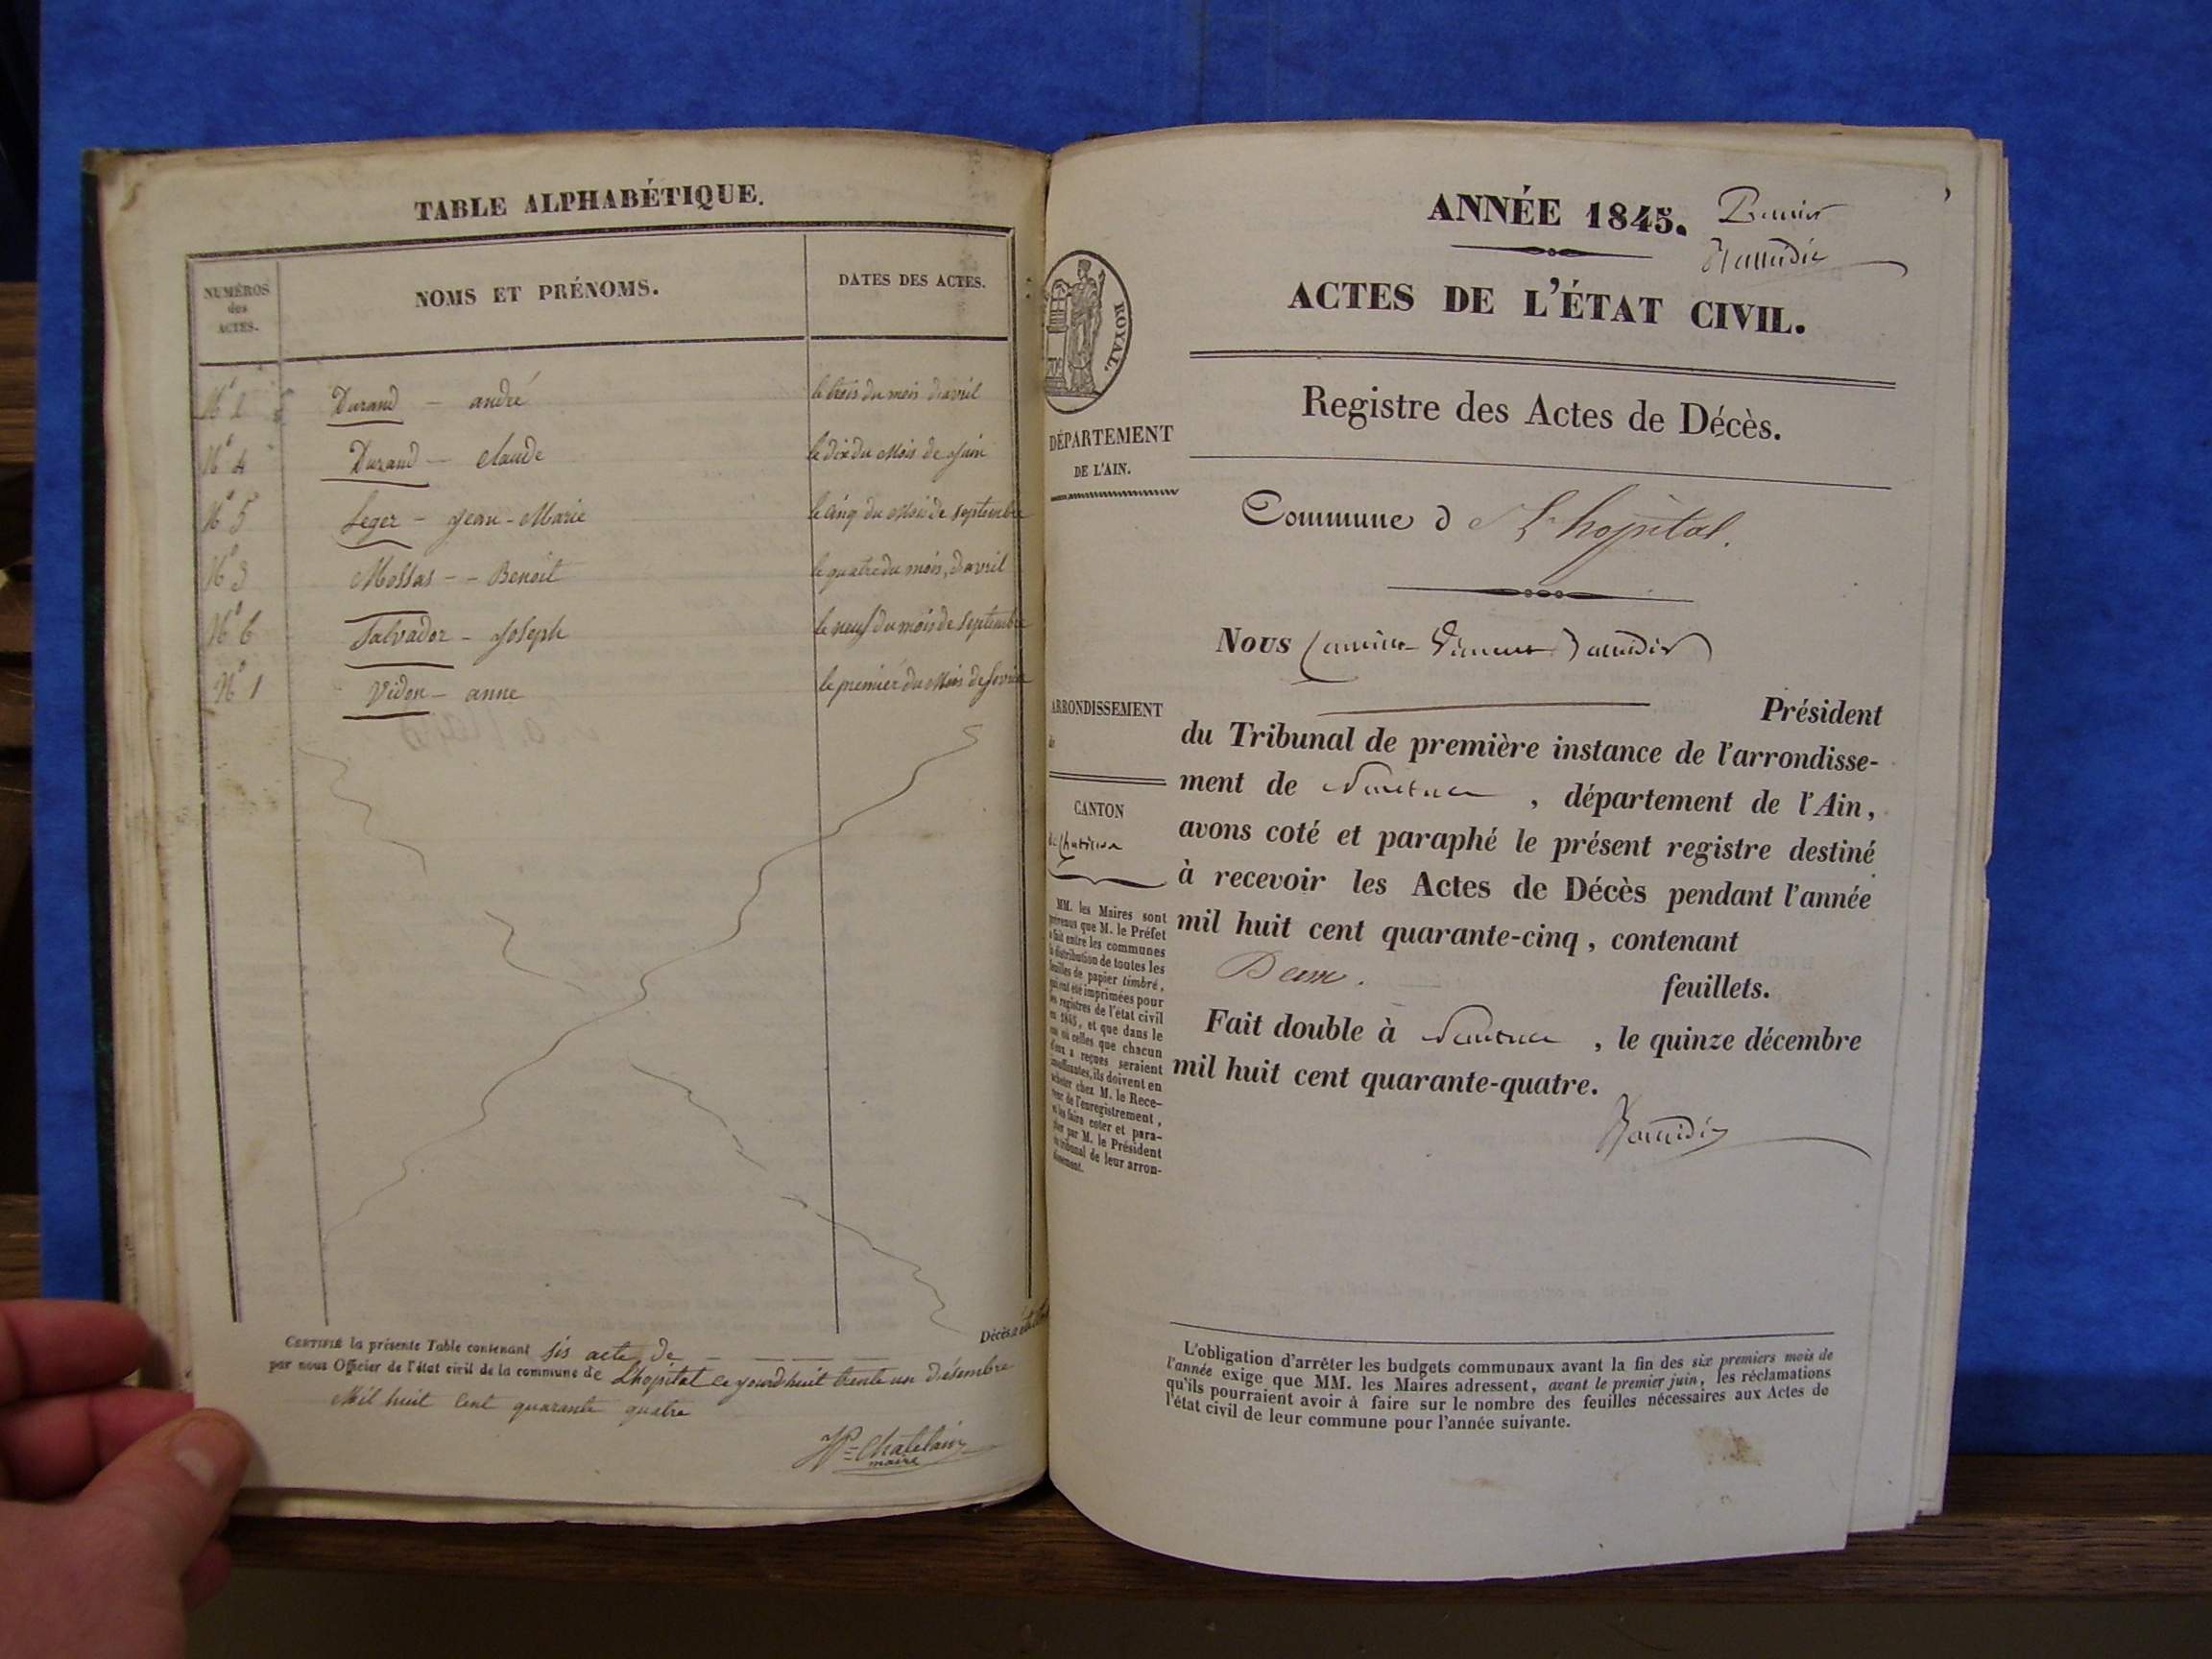 TABLE ALPHABÉTIQUE.
NUMÉROS
des
ACTES.
NOMS ET PRÉNOMS.
DATES DES ACTES.
N° 2 Durand - andré le trois du mois d'avril
N° 4 Durand - claude le dix du Mois de Juin
N° 5 Leger - Jean-Marie le cinq du Mois de Septembre
N° 3 Mossas - - Benoit le quatre du mois, d'avril
N° 6 Salvador - Joseph le neuf du mois de Septembre
N° 1 Vidon - anne le premier du Mois de
Décès
CERTIFIÉ la présente Table contenant sis acte De
par nous Officier de l'état civil de la commune de Lhopital ce jourd'huit trente un désembre
Mil huit Cent quarante quatre
Chatelain
maire
ANNÉE 1845.
Premier
ACTES DE L'ÉTAT CIVIL.
ROYAL.
Registre des Actes de Décès.
DÉPARTEMENT
DE L'AIN.
Commune d L'hopital.
Nous
ARRONDISSEMENT
de
Président
du Tribunal de première instance de l'arrondisse-
ment de Nantua, département de l'Ain,
CANTON
avons coté et paraphé le présent registre destiné
à recevoir les Actes de Décès pendant l'année
mil huit cent quarante-cinq, contenant
Deux. feuillets.
Fait double à Nantua, le quinze décembre
mil huit cent quarante-quatre.
MM. les Maires sont
prévenus que M. le Préfet
a fait entre les communes
la distribution de toutes les
feuilles de papier timbré,
qui ont été imprimées pour
les registres de l'état civil
en 1845, et que dans le
cas où celles que chacun
d'eux a reçues seraient
insuffisantes, ils doivent en
acheter chez M. le Rece-
veur de l'enregistrement,
et les faire coter et para-
pher par M. le Président
du tribunal de leur arron-
dissement.
L'obligation d'arrêter les budgets communaux avant la fin des six premiers mois de
l'année exige que MM. les Maires adressent, avant le premier juin, les réclamations
qu'ils pourraient avoir à faire sur le nombre des feuilles nécessaires aux Actes de
l'état civil de leur commune pour l'année suivante.